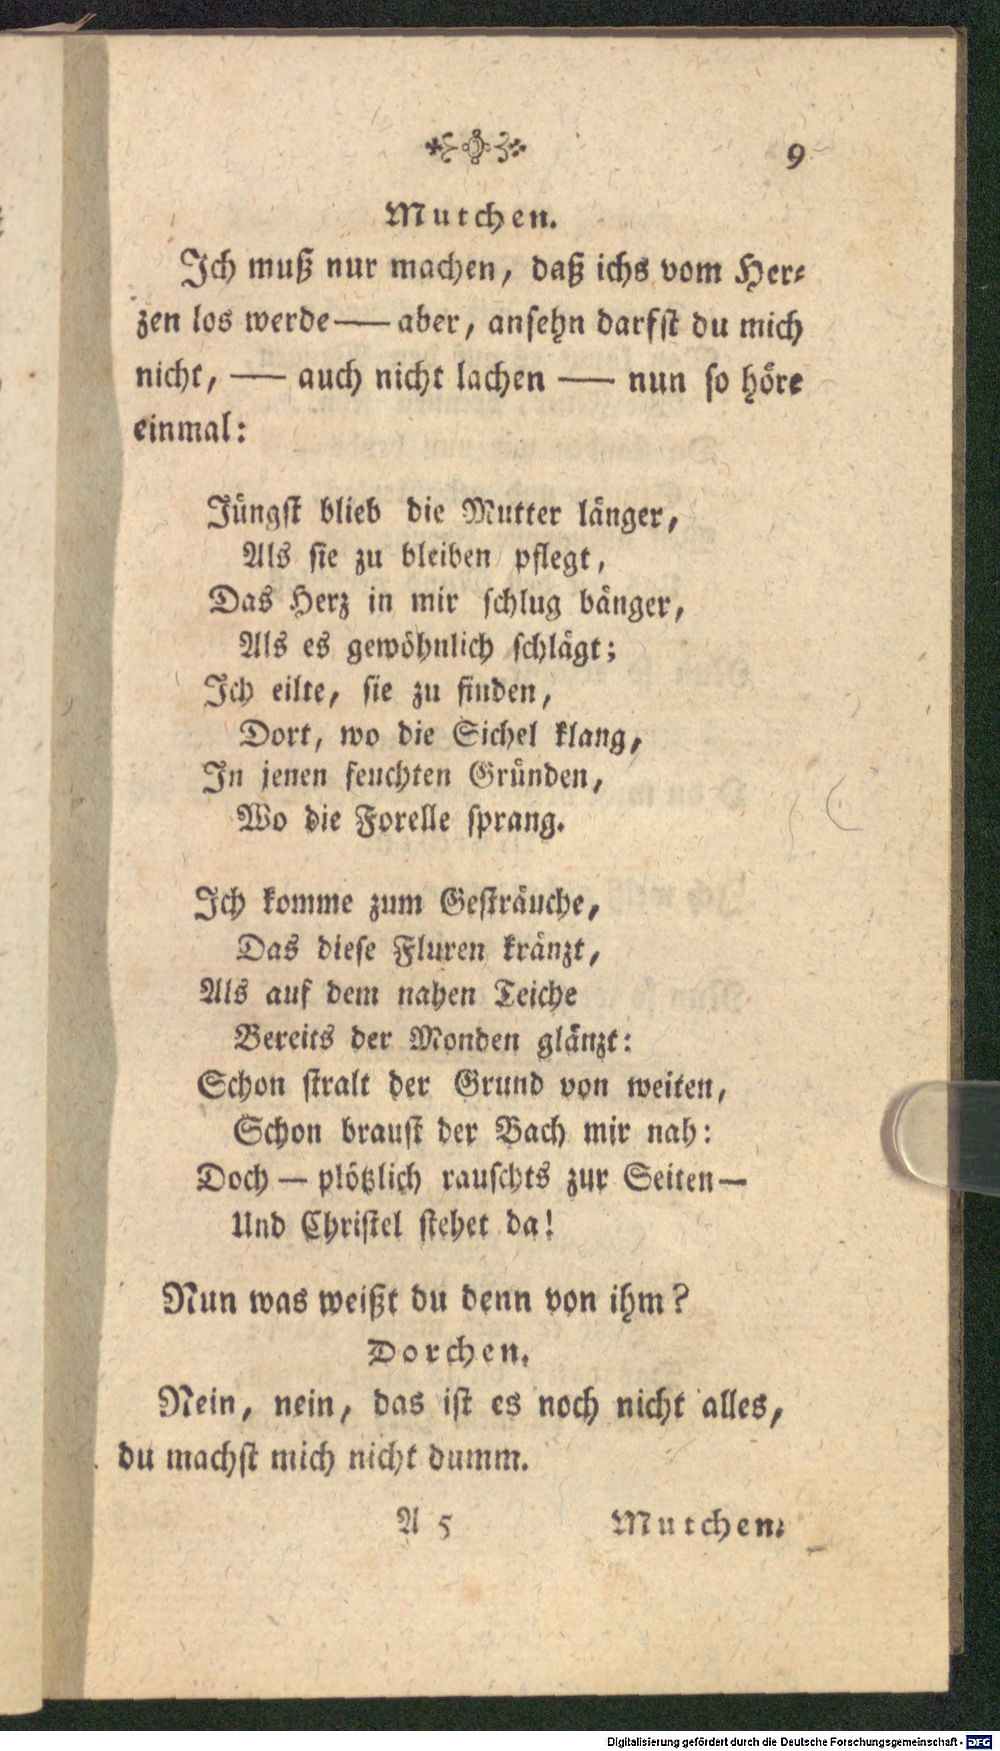 9
Mutchen.
Ich muß nur machen, daß ichs vom Her-
zen los werde — aber, ansehn darfst du mich
nicht, — auch nicht lachen — nun so höre
einmal:
Jüngst blieb die Mutter länger,
Als sie zu bleiben pflegt,
Das Herz in mir schlug bänger,
Als es gewöhnlich schlägt;
Ich eilte, sie zu finden,
Dort, wo die Sichel klang,
In jenen feuchten Gründen,
Wo die Forelle sprang.
Ich komme zum Gesträuche,
Das diese Fluren kränzt,
Als auf dem nahen Teiche
Bereits der Monden glänzt:
Schon stralt der Grund von weiten,
Schon braust der Bach mir nah:
Doch — plötzlich rauschts zur Seiten —
Und Christel stehet da!
Nun was weißt du denn von ihm?
Dorchen.
Nein, nein, das ist es noch nicht alles,
du machst mich nicht dumm.
A 5 Mutchen.
Digitalisierung gefördert durch die Deutsche Forschungsgemeinschaft - DFG